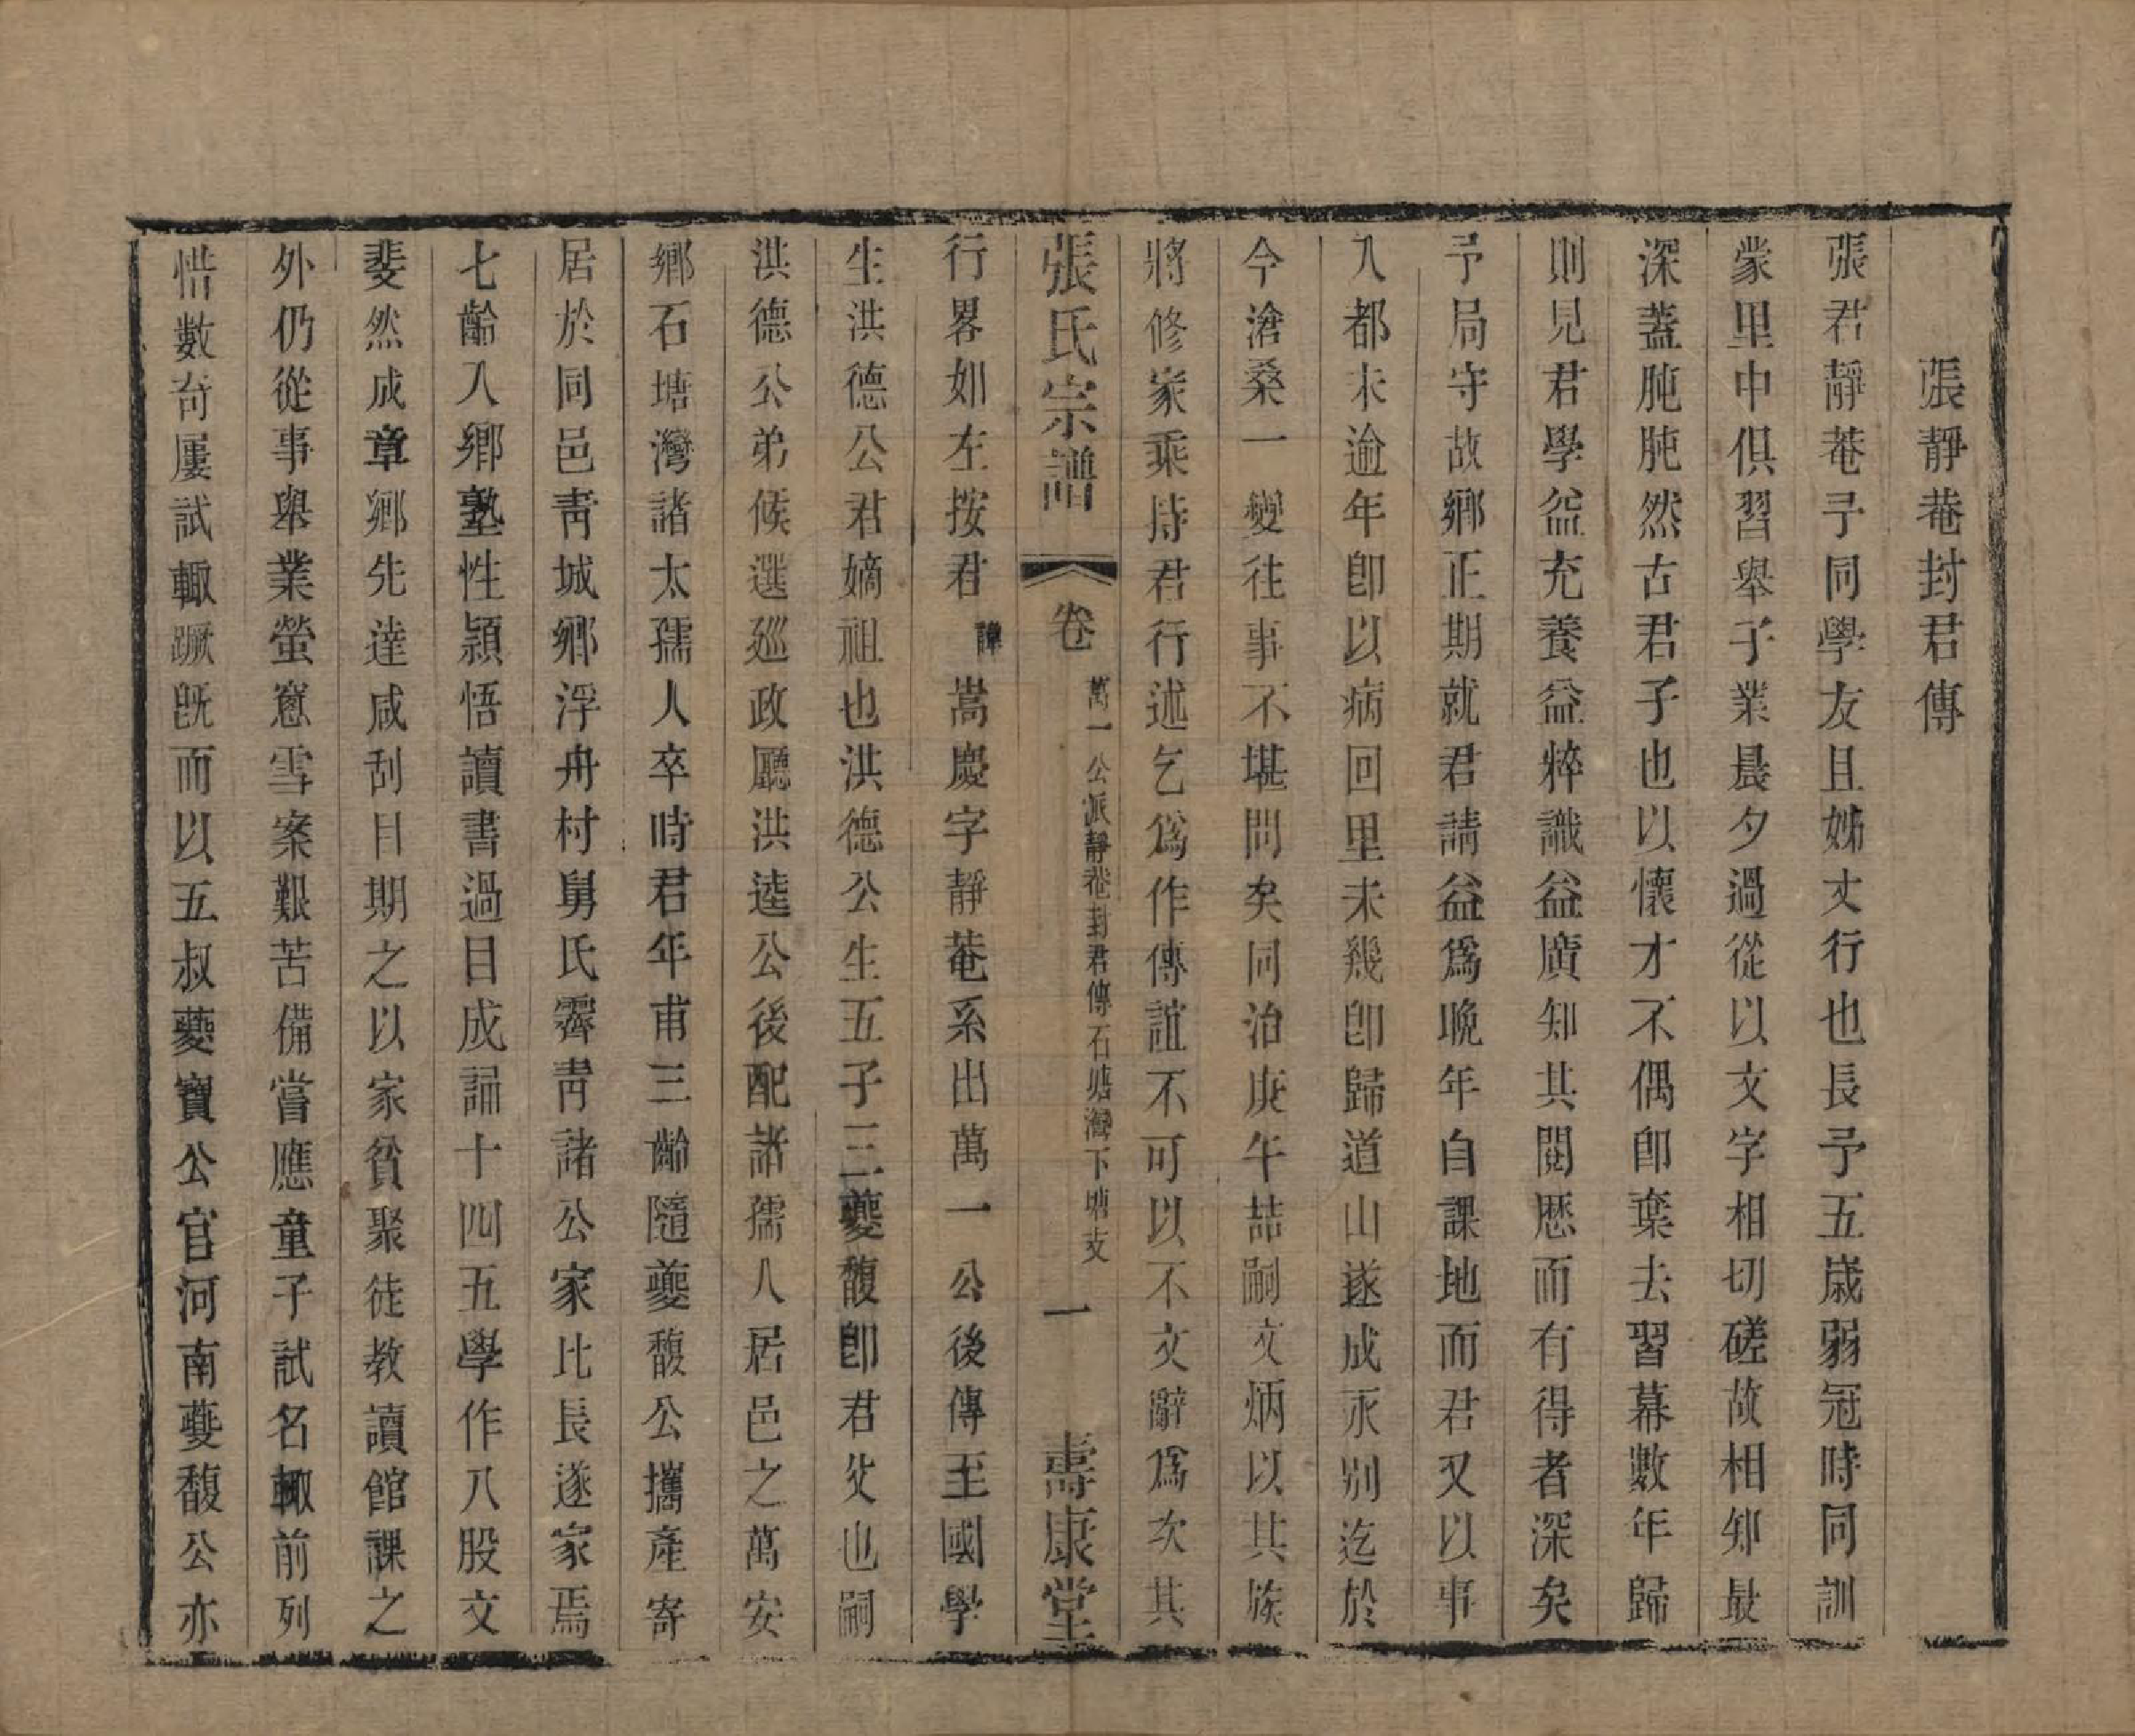 張靜菴封君傳
張君靜菴予同學友且姊丈行也長予五歲弱冠時同訓
蒙里中俱習舉子業晨夕過從以文字相切磋故相知最
深蓋肫肫然古君子也以懷才不偶卽棄去習幕數年歸
則見君學益充養益粹識益廣知其閱歷而有得者深矣
予局守故鄉正期就君請益爲晚年自課地而君又以事
入都未逾年卽以病回里未幾卽歸道山遂成永别迄於
今滄桑一變往事不堪問矣同治庚午喆嗣文炳以其族
將修家乘持君行述乞爲作傳誼不可以不文辭爲次其
張氏宗譜 卷 萬一公派靜菴封君傳石塘灣下塘支 一 壽康堂
行畧如左按君諱嵩慶字靜菴系出萬一公後傳至國學
生洪德公君嫡祖也洪德公生五子三夔馥卽君父也嗣
洪德公弟候選廵政廳洪逵公後配諸孺人居邑之萬安
鄉石塘灣諸太孺人卒時君年甫三齡隨夔馥公攜產寄
居於同邑靑城鄉浮舟村舅氏霽靑諸公家比長遂家焉
七齡入鄉塾性穎悟讀書過目成誦十四五學作八股文
斐然成章鄉先達咸刮目期之以家貧聚徒教讀館課之
外仍從事舉業螢窻雪案艱苦備嘗應童子試名輙前列
惜數奇屢試輙蹶旣而以五叔夔寶公官河南夔馥公亦